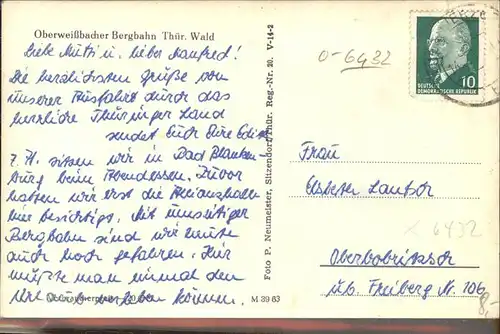 Oberweißbacher Bergbahn Thür. Wald
Liebe Mutti u. lieber Manfred!
Die herzlichsten Grüße von
unserer Ausfahrt durch das
herrliche Thüringer Land
sendet Euch Eure
z. Zt. sitzen wir in Bad Blanken-
burg beim Abendessen. Zuvor
hatten wir erst die
hier besichtigt. Mit
Bergbahn sind wir heute
auch hoch gefahren. Hier
müßte man einmal den
erleben können.
M 39 63
Foto P. Neumeister, Sitzendorf/Thür. Reg.-Nr. 20. V-14-2
0-6432
10
DEUTSCHE
DEMOKRATISCHE REPUBLIK
Frau
Lautsch
6432
Oberbobritzsch
üb. Freiberg Nr. 106